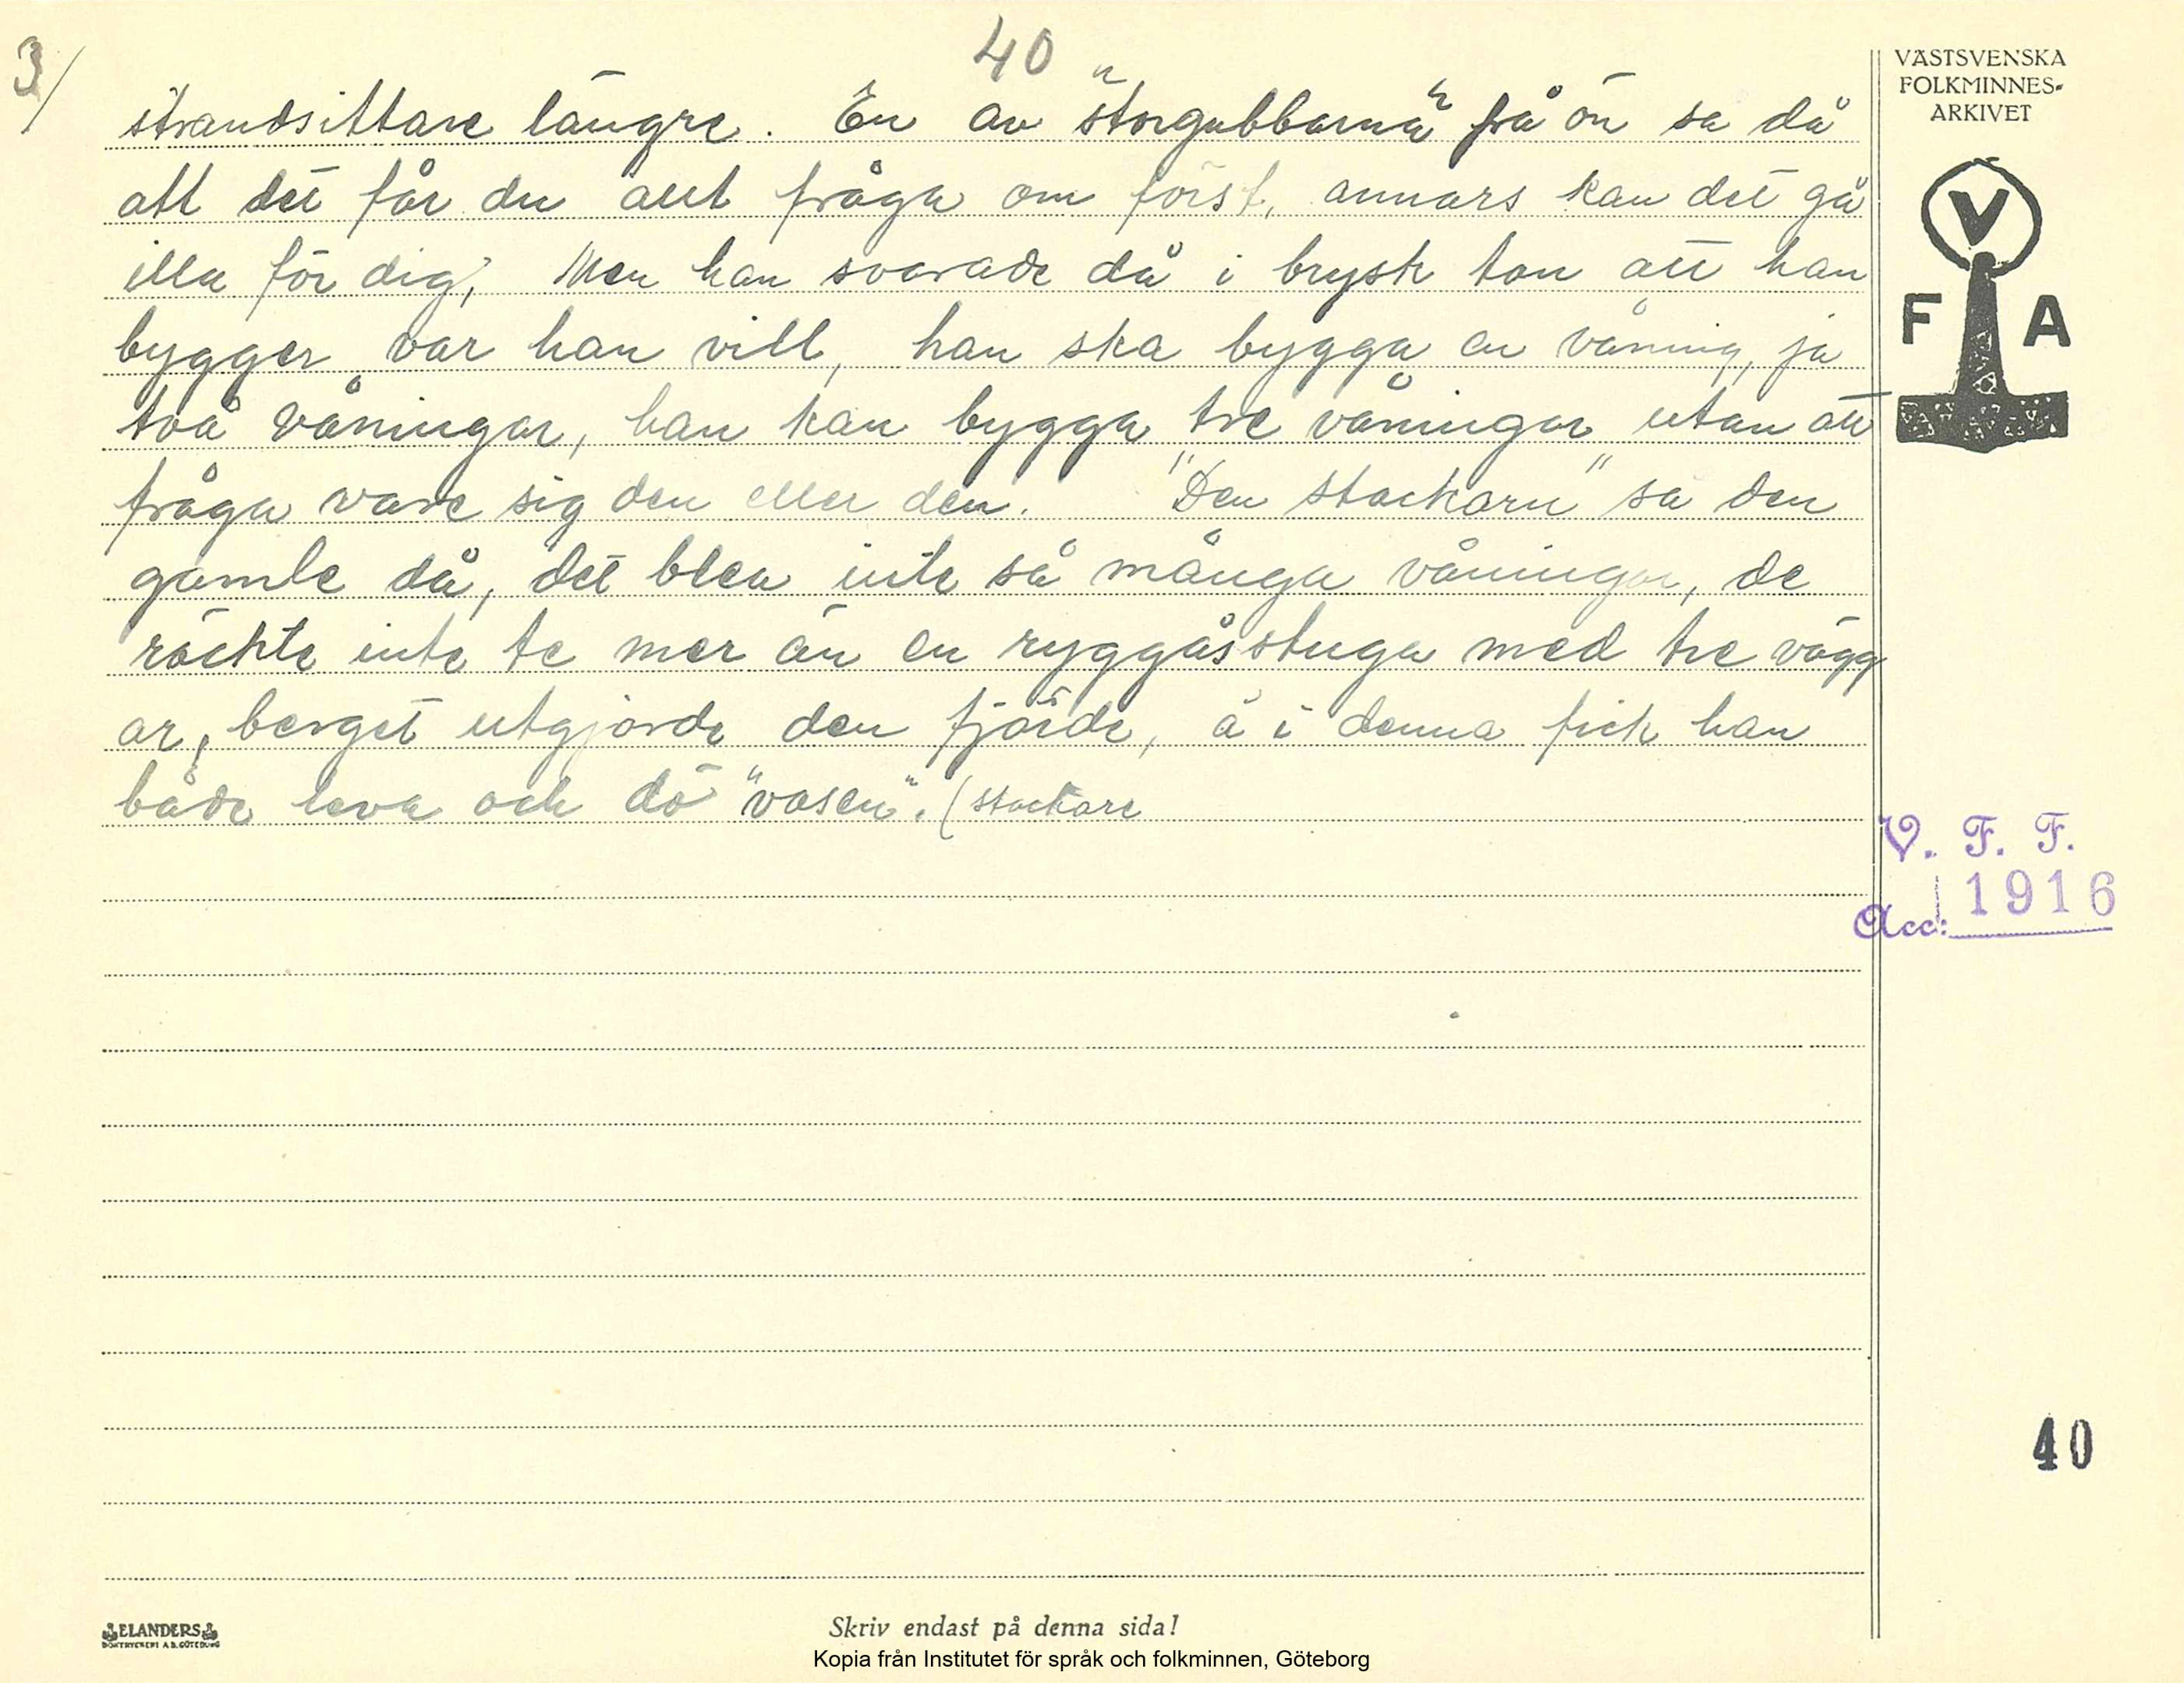 3/
40
strandsittare längre. En av "storgubbarna" på ön sa då
att det får du allt fråga om först, annars kan det gå
illa för dig; Men han svarade då i brysk ton att han
bygger var han vill, han ska bygga en våning, ja
två våningar, han kan bygga tre våningar utan att
fråga vare sig den eller den. "Den stackarn" sa den
gamle då, det blev inte så många våningar, de
räckte inte te mer än en ryggåsstuga med tre vägg
ar, berget utgjorde den fjärde, å i denna fick han
både leva och dö "vasen". (stackare
VÄSTSVENSKA
FOLKMINNES-
ARKIVET
V
F A
V. F. F.
Acc: 1916
40
ELANDERS
BOKTRYCKERI A.B. GÖTEBORG
Skriv endast på denna sida!
Kopia från Institutet för språk och folkminnen, Göteborg